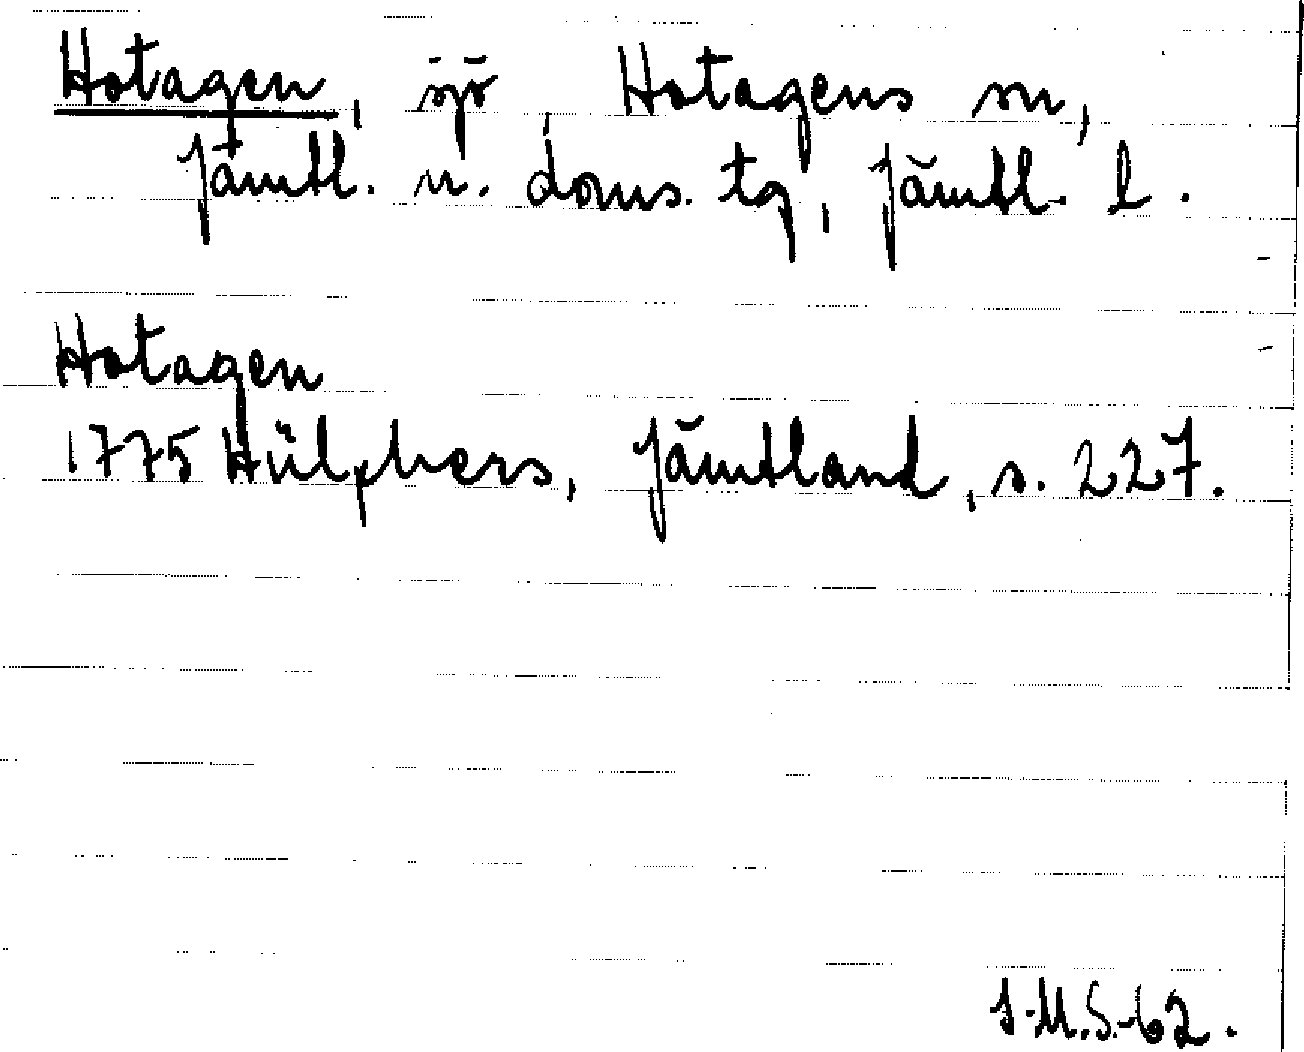 Hotagen, sjö Hotagens sn,
Jämtl. n. doms. tg, Jämtl. l.
Hotagen
1775 Hülphers, Jämtland, s. 227.
J.M.S.-62.